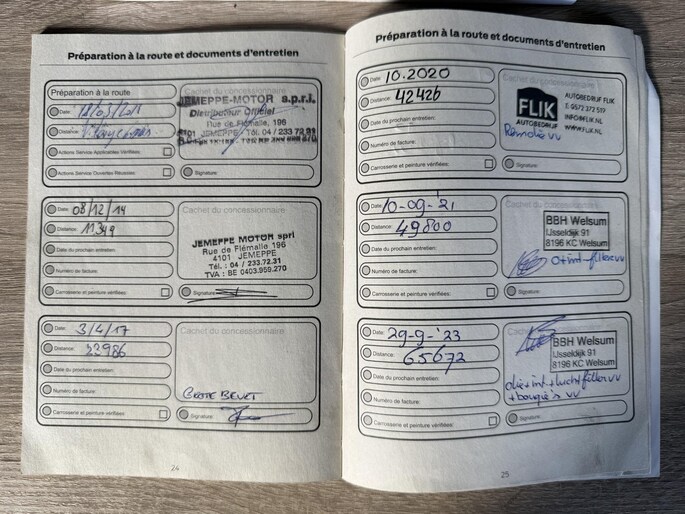 Préparation à la route et documents d'entretien
Préparation à la route
Date:
Distance:
Actions Service Applicables Vérifiées:
Actions Service Ouvertes Réussies:
Cachet du concessionnaire
JEMEPPE-MOTOR s.p.r.l.
Distributeur Officiel
Rue de Flémalle, 196
4101 JEMEPPE - Tél. 04 / 233 72 31
Signature:
Date: 03/12/14
Distance: 11349
Date du prochain entretien:
Numéro de facture:
Carrosserie et peinture vérifiées:
Cachet du concessionnaire
JEMEPPE MOTOR sprl
Rue de Flémalle 196
4101 JEMEPPE
Tél.: 04 / 233.72.31
TVA : BE 0403.959.270
Signature:
Date: 3/4/17
Distance: 33986
Date du prochain entretien:
Numéro de facture:
Carrosserie et peinture vérifiées:
Cachet du concessionnaire
GROTE BEURT
Signature:
24
Préparation à la route et documents d'entretien
Date: 10.2020
Distance: 42426
Date du prochain entretien:
Numéro de facture:
Carrosserie et peinture vérifiées:
FLIK
AUTOBEDRIJF
AUTOBEDRIJF FLIK
T. 0572 372 559
INFO@FLIK.NL
WWW.FLIK.NL
Remolie vv
Signature:
Date: 10-09-'21
Distance: 49800
Date du prochain entretien:
Numéro de facture:
Carrosserie et peinture vérifiées:
Cachet du concessionnaire
BBH Welsum
IJsseldijk 91
8196 KC Welsum
o+int-filter vv
Signature:
Date: 29-9-'23
Distance: 65672
Date du prochain entretien:
Numéro de facture:
Carrosserie et peinture vérifiées:
Cachet du concessionnaire
BBH Welsum
IJsseldijk 91
8196 KC Welsum
olie+int+luchtfilter vv
+bougie's vv
Signature:
25